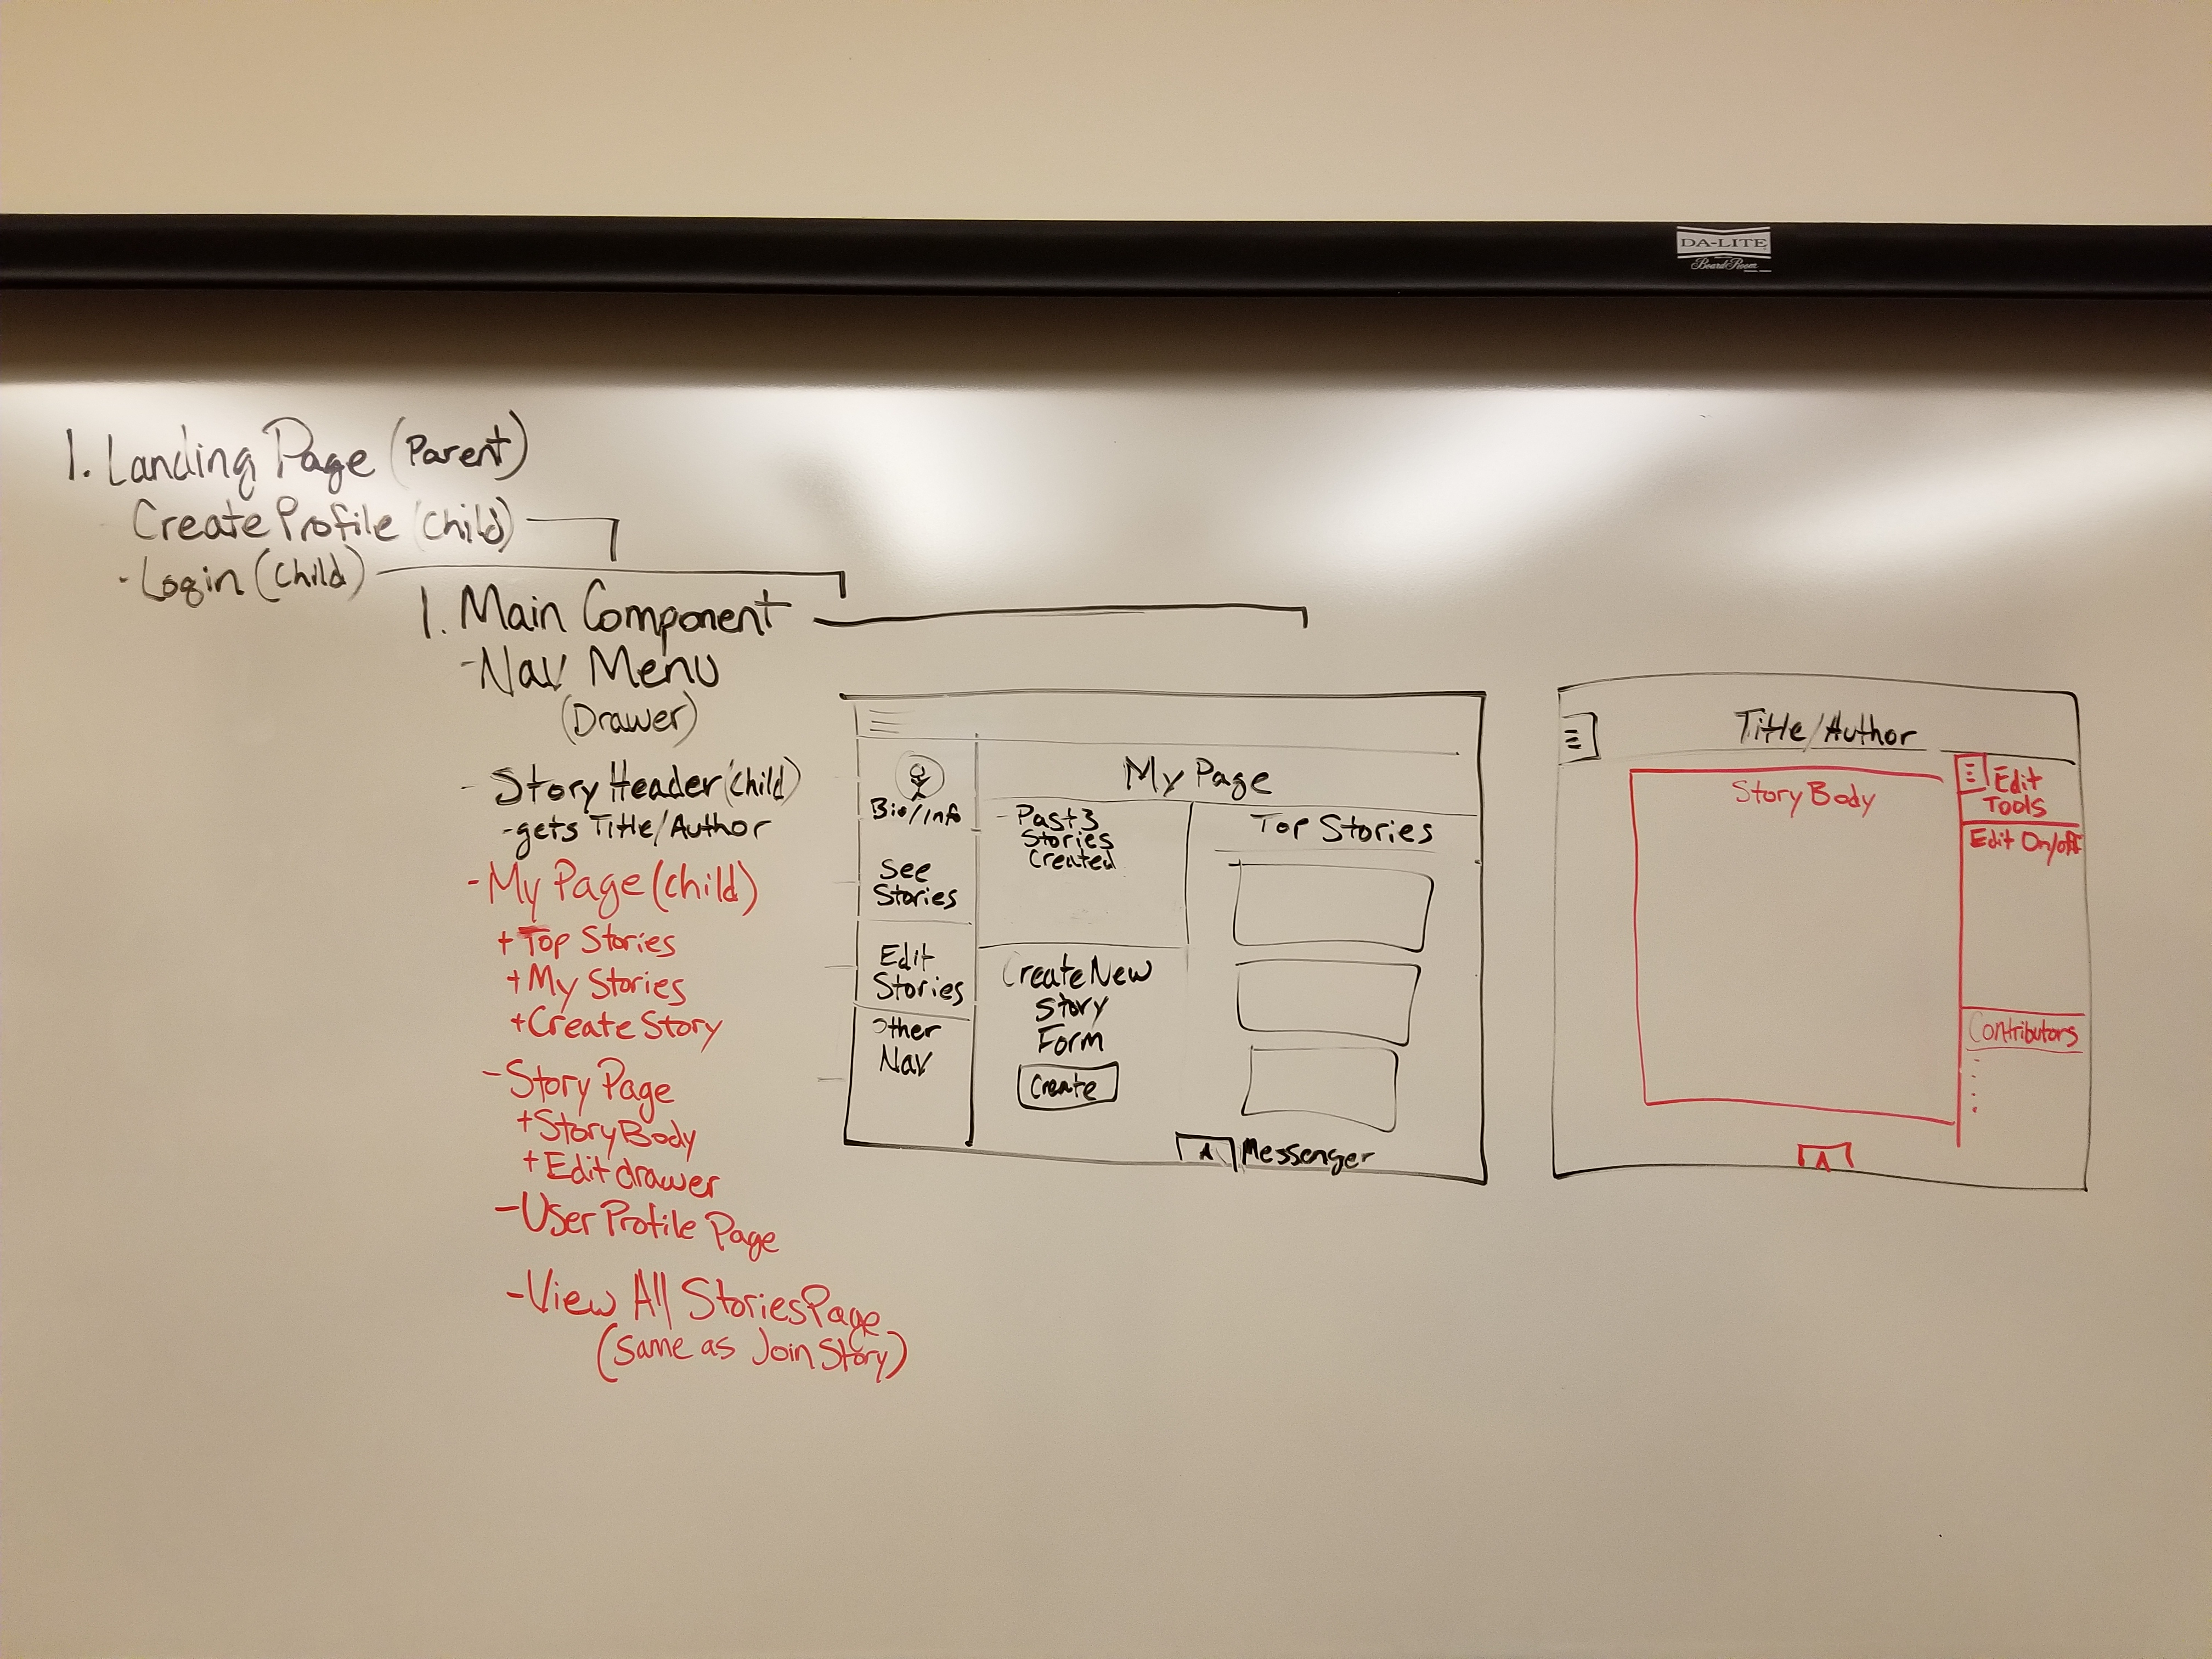 DA-LITE
BoardRoom
1. Landing Page (Parent)
Create Profile (Child)
- Login (Child)
1. Main Component
- Nav Menu
(Drawer)
- Story Header (Child)
- gets Title/Author
- My Page (Child)
+ Top Stories
+ My Stories
+ Create Story
- Story Page
+ Story Body
+ Edit drawer
- User Profile Page
- View All Stories Page
(Same as Join Story)
Bio/Info
See
Stories
Edit
Stories
Other
Nav
My Page
- Past 3
Stories
Created
Create New
Story
Form
Create
Top Stories
Messenger
Title/Author
Story Body
Edit
Tools
Edit On/off
Contributors